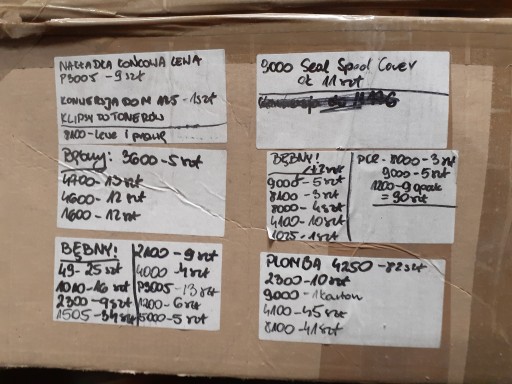 NAKŁADKA KOŃCOWA LEWA
P3005 - 9 szt
KONWERSJA DO M 125 - 1 szt
KLIPSY DO TONERÓW
8100 - LEWE I PRAWE
9000 Seal Spool Cover
ok 11 szt
Bębny: 3600 - 5 szt
4700 - 13 szt
4600 - 12 szt
1600 - 12 szt
BĘBNY!
9000 - 5 szt
8100 - 3 szt
8000 - 4 szt
4100 - 10 szt
1025 - 1 szt
PCR - 8000 - 3 szt
9000 - 5 szt
1200 - 9 opak
= 90 szt
BĘBNY!
49 - 25 szt
1010 - 16 szt
2300 - 9 szt
1505 - 34 szt
2100 - 9 szt
4000 - 4 szt
P3005 - 13 szt
1200 - 6 szt
5000 - 5 szt
PLOMBA 4250 - 82 szt
2300 - 10 szt
9000 - 1 karton
4100 - 45 szt
8100 - 41 szt